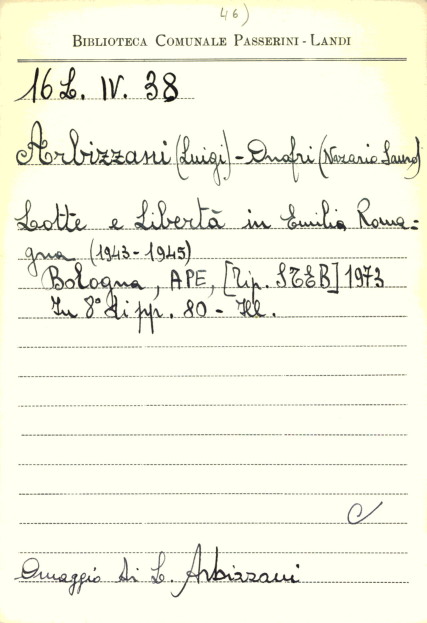 46)
BIBLIOTECA COMUNALE PASSERINI - LANDI
16 L. IV. 38
Arbizzani (Luigi) - Onofri (Nazario Sauro)
Lotte e Libertà in Emilia Roma=
gna (1943 - 1945)
Bologna, APE, [Tip. STEB] 1973
In 8° di pp. 80 - Ill.
C
Omaggio di L. Arbizzani